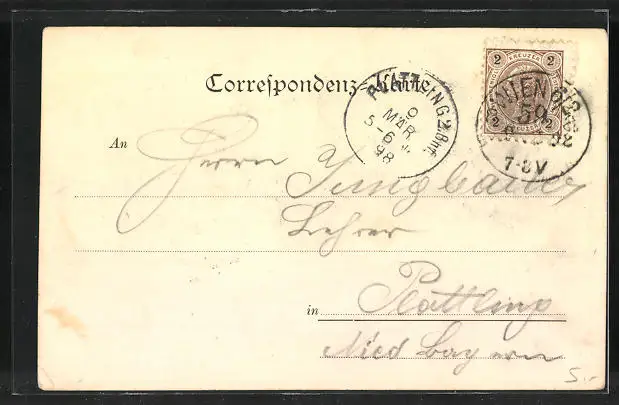 Correspondenz-Karte
2 KREUZER 2
WIEN
59
7-8V
PLATTLING 2.Bhf.
9
MÄR.
5-6
98
An Herrn Jungbauer
Lehrer
in Plattling
Nied Bayern
5.-